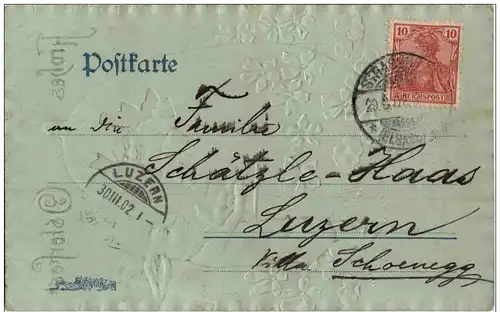 10 10
REICHSPOST
Postkarte
an die Familie
Schätzle-Haas
LUZERN
30III.02.I-
Luzern
Villa Schoenegg